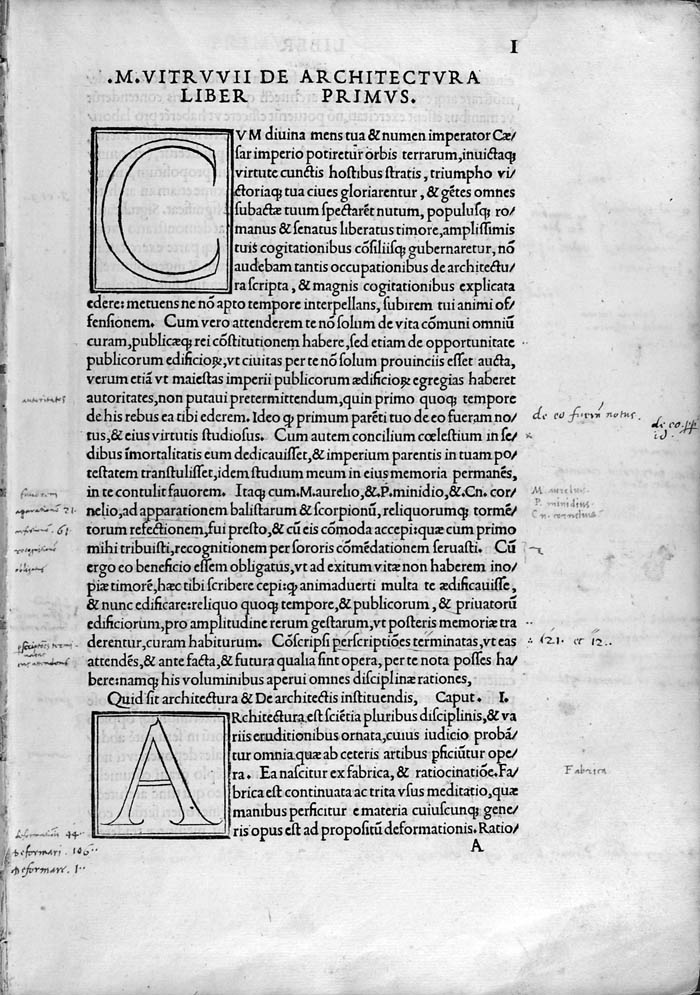 I
.M.VITRVVII DE ARCHITECTVRA
LIBER PRIMVS.
CVM diuina mens tua & numen imperator Cæ/
sar imperio potiretur orbis terrarum, inuictaꝗ
virtute cunctis hostibus stratis, triumpho vi/
ctoriaꝗ tua ciues gloriarentur, & gẽtes omnes
subactæ tuum spectarẽt nutum, populusꝗ ro/
manus & senatus liberatus timore, amplissimis
tuis cogitationibus cõsiliisꝗ gubernaretur, nõ
audebam tantis occupationibus de architectu/
ra scripta, & magnis cogitationibus explicata
edere: metuens ne nõ apto tempore interpellans, subirem tui animi of/
fensionem. Cum vero attenderem te nõ solum de vita cõmuni omniũ
curam, publicæꝗ rei cõstitutionem habere, sed etiam de opportunitate
publicorum edificioꝝ, vt ciuitas per te nõ solum prouinciis esset aucta,
verum etiã vt maiestas imperii publicorum ædificioꝝ egregias haberet
autoritates, non putaui pretermittendum, quin primo quoꝗ tempore
de his rebus ea tibi ederem. Ideo ꝙ primum parẽti tuo de eo fueram no/
tus, & eius virtutis studiosus. Cum autem concilium cœlestium in se/
dibus ĩmortalitatis eum dedicauisset, & imperium parentis in tuam po/
testatem transtulisset, idem studium meum in eius memoria permanẽs,
in te contulit fauorem. Itaꝗ cum.M.aurelio, &.P.minidio, &.Cn. cor/
nelio, ad apparationem balistarum & scorpionũ, reliquorumꝗ tormẽ/
torum refectionem, fui presto, & cũ eis cõmoda accepi: quæ cum primo
mihi tribuisti, recognitionem per sororis cõmẽdationem seruasti. Cũ
ergo eo beneficio essem obligatus, vt ad exitum vitæ non haberem ino/
piæ timorẽ, hæc tibi scribere cepi: ꝙ animaduerti multa te ædificauisse,
& nunc edificare: reliquo quoꝗ tempore, & publicorum, & priuatorũ
edificiorum, pro amplitudine rerum gestarum, vt posteris memoriæ tra
derentur, curam habiturum. Cõscripsi perscriptiões terminatas, vt eas
attendẽs, & ante facta, & futura qualia sint opera, per te nota posses ha/
bere: namꝗ his voluminibus aperui omnes disciplinæ rationes,
Quid sit architectura & De architectis instituendis, Caput. I.
ARchitectura est sciẽtia pluribus disciplinis, & va
riis eruditionibus ornata, cuius iudicio probã/
tur omnia quæ ab ceteris artibus ꝑficiũtur ope/
ra. Ea nascitur ex fabrica, & ratiocinatiõe. Fa/
brica est continuata ac trita vsus meditatio, quæ
manibus perficitur e materia cuiuscunꝗ gene/
ris opus est ad propositũ deformationis. Ratio/
A
autoritates
de eo fuerã notus.
de eo
M. aurelius.
P. minidius.
Cn. cornelius
obligatus
121. et 12..
Fabrica
Deformari. 106..
Deformare. 1..